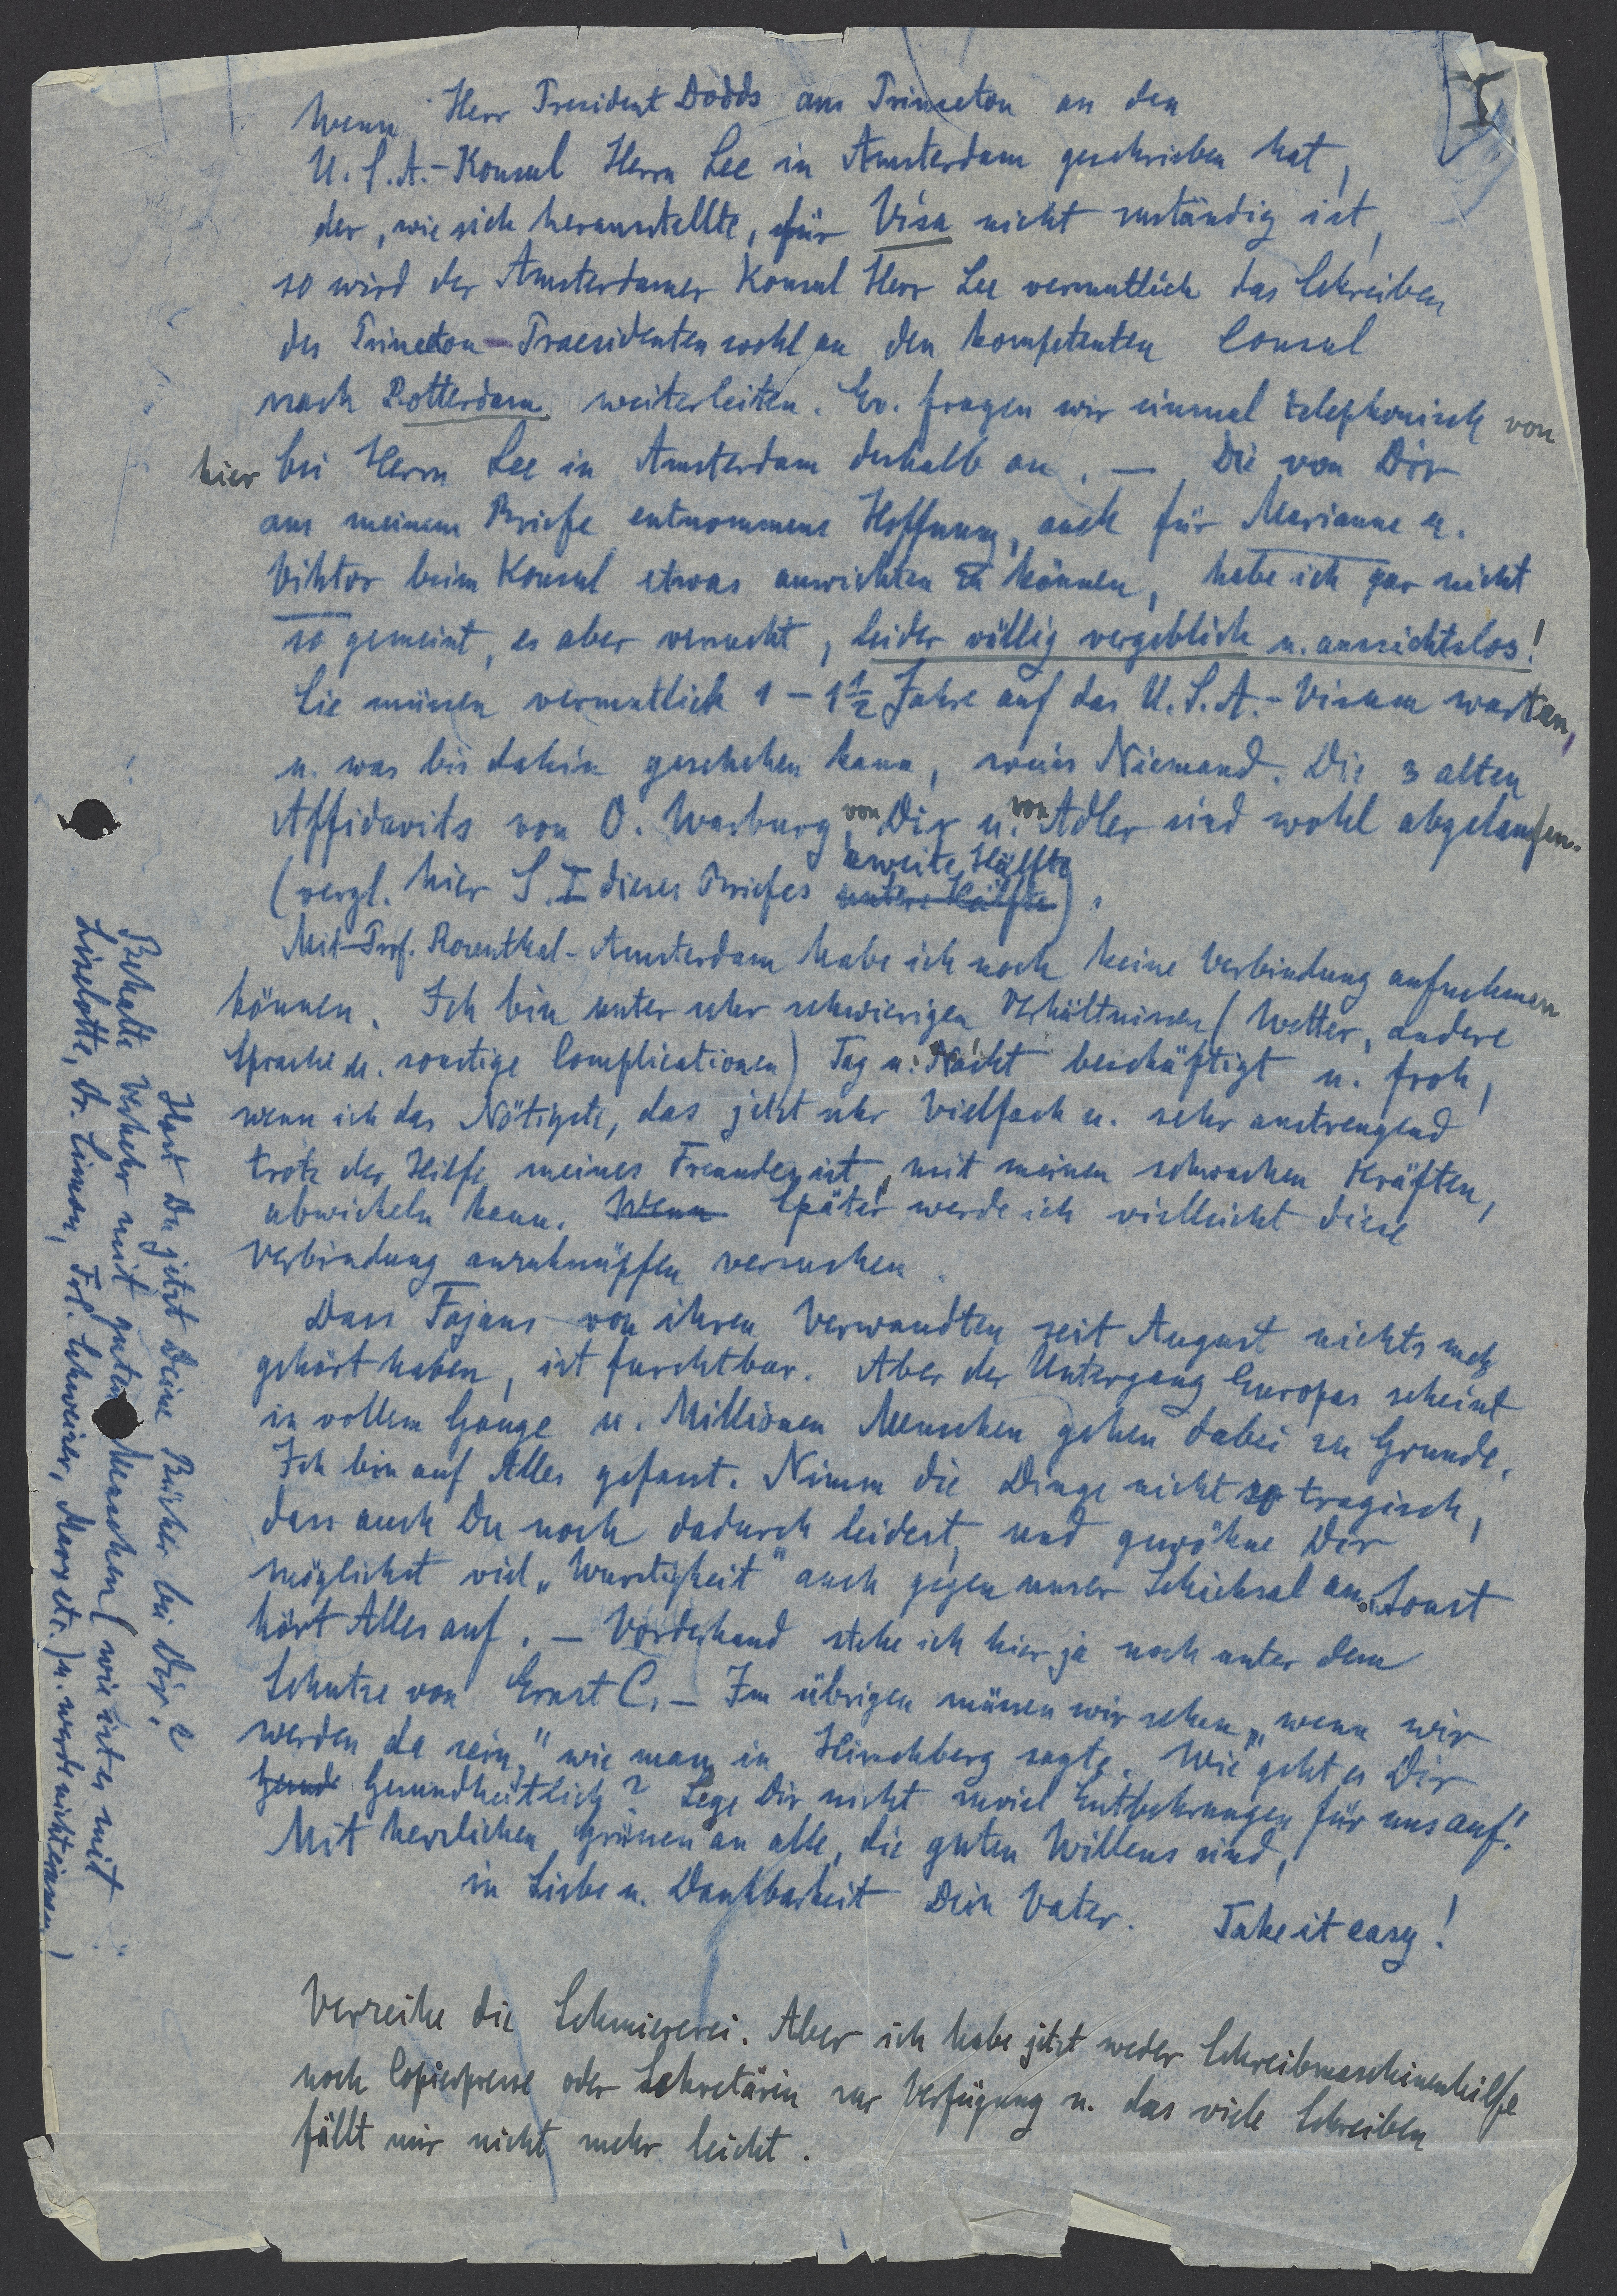 I
Wenn Herr President Dodds aus Princeton an den
U.S.A.-Konsul Herrn Lee in Amsterdam geschrieben hat,
der, wie sich herausstellte, für Visa nicht zuständig ist,
so wird der Amsterdamer Konsul Herr Lee vermutlich das Schreiben
des Princeton-Praesidenten wohl an den kompetenten Consul
nach Rotterdam weiterleiten. Ev. fragen wir einmal telephonisch von
hier bei Herrn Lee in Amsterdam deshalb an. — Die von Dir
aus meinem Briefe entnommene Hoffnung, auch für Marianne u.
Viktor beim Konsul etwas ausrichten zu können, habe ich gar nicht
so gemeint, es aber versucht, leider völlig vergeblich u. aussichtslos!
Sie müssen vermutlich 1 – 1½ Jahre auf das U.S.A.-Visum warten,
u. was bis dahin geschehen kann, weiss Niemand. Die 3 alten
Affidavits von O. Warburg, von Dir u. von Adler sind wohl abgelaufen.
(vergl. hier S. I dieses Briefes untere Hälfte zweite Hälfte).
Mit Prof. Rosenthal-Amsterdam habe ich noch keine Verbindung aufnehmen
können. Ich bin unter sehr schwierigen Verhältnissen (Wetter, andere
Sprache u. sonstige Complicationen) Tag u. Nacht beschäftigt u. froh,
wenn ich das Nötigste, das jetzt sehr vielfach u. sehr anstrengend
trotz der Hilfe meines Freundes ist, mit meinen schwachen Kräften,
abwickeln kann. Wenn Später werde ich vielleicht diese
Verbindung anzuknüpfen versuchen.
Dass Fajans von ihren Verwandten seit August nichts mehr
gehört haben, ist furchtbar. Aber der Untergang Europas scheint
in vollem Gange u. Millionen Menschen gehen dabei zu Grunde.
Ich bin auf Alles gefasst. Nimm die Dinge nicht so tragisch,
dass auch Du noch dadurch leidest, und gewöhne Dir
möglichst viel „Wurstigkeit" auch gegen unser Schicksal an. Sonst
hört Alles auf. — Vorderhand stehe ich hier ja noch unter dem
Schutze von Ernst C. — Im übrigen müssen wir sehen, „wenn wir
werden da sein," wie man in Hirschberg sagte. Wie geht es Dir
Gesund Gesundheitlich? Lege Dir nicht zuviel Entbehrungen für uns auf!
Mit herzlichen Grüssen an alle, die guten Willens sind,
in Liebe u. Dankbarkeit Dein Vater. Take it easy!
Verzeihe die Schmiererei. Aber ich habe jetzt weder Schreibmaschinenhilfe
noch Copierpresse oder Sekretärin zur Verfügung u. das viele Schreiben
fällt mir nicht mehr leicht.
Hast Du jetzt Deine Bücher bei Dir?
Behalte Verkehr mit guten Menschen (wie ist es mit
Liselotte, Dr. Simon, Frl. Schweizer, Marx etc.) u. werde nicht einsam!